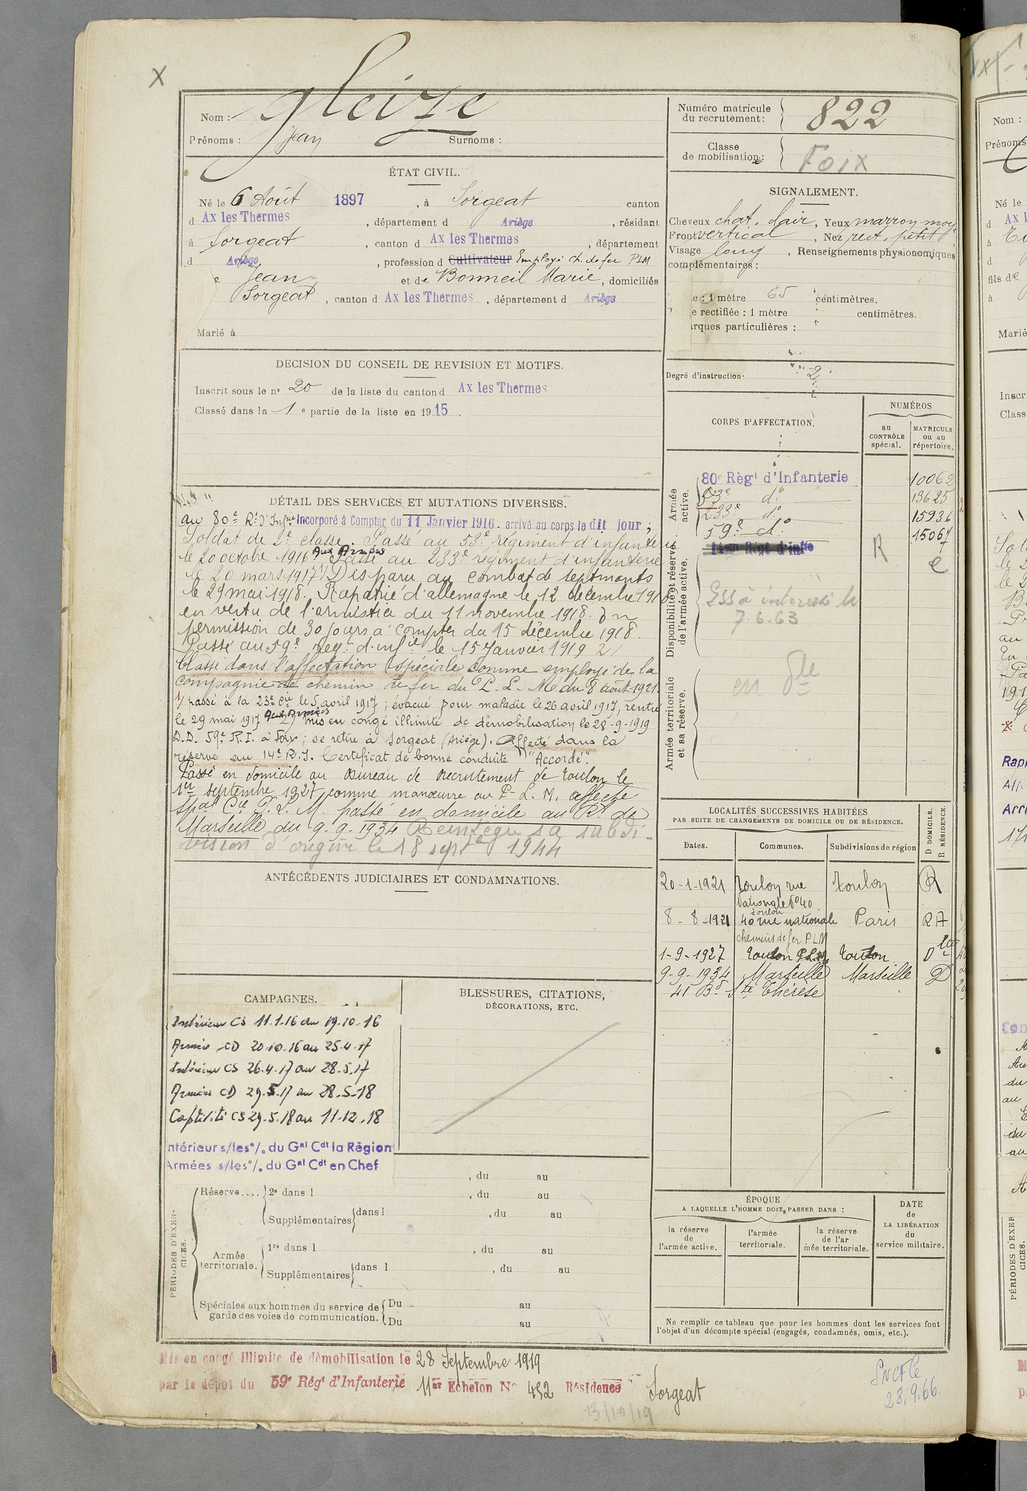 X
Nom : Gleize
Prénoms : Jean Surnoms :
Numéro matricule du recrutement : 822
Classe de mobilisation : Foix
ÉTAT CIVIL.
Né le 6 Août 1897, à Sorgeat canton
d Ax les Thermes, département d Ariège, résidant
à Sorgeat, canton d Ax les Thermes, département
d Ariège, profession d Cultivateur Employé ch de fer PLM
Jean et de Bonneil Marie, domiciliés
Sorgeat, canton d Ax les Thermes, département d Ariège
Marié à
SIGNALEMENT.
Cheveux chat. clair, Yeux marron moy
Front vertical, Nez rect. petit
Visage long, Renseignements physionomiques
complémentaires :
e : 1 mètre 65 centimètres.
e rectifiée : 1 mètre centimètres.
rques particulières :
Degré d'instruction : 2
DÉCISION DU CONSEIL DE REVISION ET MOTIFS.
Inscrit sous le n° 20 de la liste du canton d Ax les Thermes
Classé dans la 1e partie de la liste en 1915.
DÉTAIL DES SERVICES ET MUTATIONS DIVERSES.
au 80e Rt d'Infie Incorporé à Compter du 11 Janvier 1916. arrivé au corps le dit jour,
Soldat de 2e classe. Passé au 53e régiment d'infanterie
le 20 octobre 1916 Aux Armées Passé au 233e régiment d'infanterie
le 20 mars 1917 1) Disparu au combat de Septmonts
le 29 mai 1918. Rapatrié d'allemagne le 12 décembre 191
en vertu de l'armistice du 11 novembre 1918. En
permission de 30 jours à compter du 15 décembre 1918.
Passé au 59e Rég. d'infie le 15 Janvier 1919 2)
Classé dans l'affectation spéciale comme employé de la
compagnie de chemin de fer du P. L. M du 8 août 1921
1) passé à la 23e Cie le 5 avril 1917 ; évacué pour maladie le 26 avril 1917, rentré
le 29 mai 1917 Aux Armées 2) mis en congé illimité de démobilisation le 28-9-1919
D.D. 59e R.I. à Foix ; se retire à Sorgeat (Ariège). Affecté dans la
réserve au 14e R.I. Certificat de bonne conduite "Accordé".
Passé en domicile au Bureau de Recrutement de Toulon le
1er septembre 1927 comme manœuvre au P. L. M. affecté
spal Cie P. L. M. passé en domicile au Rt de
Marseille du 9-9-1934 Réintégré sa subdi-
vision d'origine le 18 septbre 1944
CORPS D'AFFECTATION.
NUMÉROS
au CONTRÔLE spécial.
MATRICULE ou au répertoire.
Armée active.
80e Régt d'Infanterie 10062
53e do 13625
233e do 15936
59e do 15067
R
Disponibilité et réserve de l'armée active.
14eme Régt d'Infie
ESS à intéressé le
7.6.63
Armée territoriale et sa réserve.
LOCALITÉS SUCCESSIVES HABITÉES
PAR SUITE DE CHANGEMENTS DE DOMICILE OU DE RÉSIDENCE.
D DOMICILE. R RÉSIDENCE.
Dates. Communes. Subdivisions de région
20-1-1921 Toulon rue Nationale N°40 Toulon R
8-8-1921 Toulon 40 rue nationale Paris RA
chemins de fer PLM
1-9-1927 Toulon PLM Toulon D
9-9-1934 Marseille Marseille D
41 Bd Ste Thérèse
ANTÉCÉDENTS JUDICIAIRES ET CONDAMNATIONS.
CAMPAGNES.
Intérieur CS 11.1.16 au 19.10.16
Armées CD 20.10.16 au 25.4.17
Intérieur CS 26.4.17 au 28.5.17
Armées CD 29.5.17 au 28.5.18
Captivité CS 29.5.18 au 11.12.18
ntérieur s/les °/. du Gal Cdt la Région
Armées s/les °/. du Gal Cdt en Chef
BLESSURES, CITATIONS,
DÉCORATIONS, ETC.
PÉRIODES D'EXERCICES.
, du au
Réserve.... 2e dans l , du au
Supplémentaires dans l , du au
Armée territoriale. 1re dans l , du au
Supplémentaires dans l , du au
Spéciales aux hommes du service de garde des voies de communication. Du au
Du au
ÉPOQUE
A LAQUELLE L'HOMME DOIT PASSER DANS :
la réserve de l'armée active.
l'armée territoriale.
la réserve de l'ar mée territoriale.
DATE de LA LIBÉRATION du service militaire.
Ne remplir ce tableau que pour les hommes dont les services font
l'objet d'un décompte spécial (engagés, condamnés, omis, etc.).
Mis en congé illimité de démobilisation le 28 Septembre 1919
par le dépôt du 59e Régt d'Infanterie 11er Echelon N° 452 Résidence Sorgeat
13/10/19
SNCF le
28.9.66.